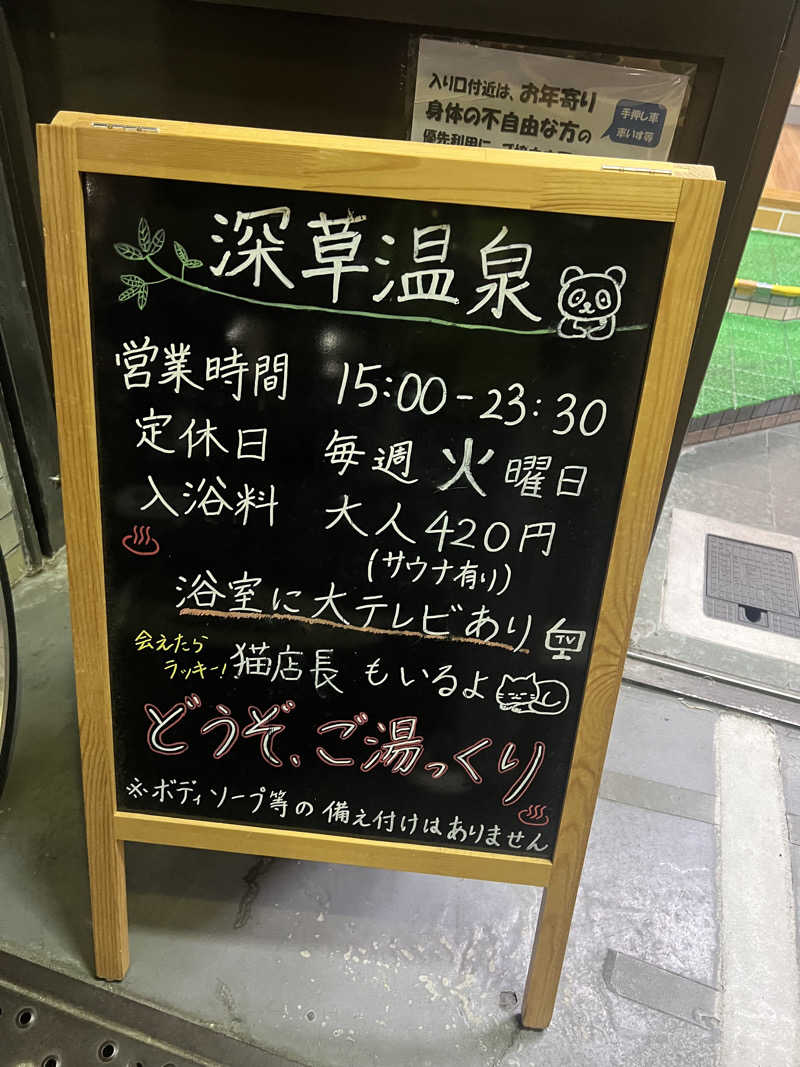 入り口付近は、お年寄り
身体の不自由な方の
優先利用に
手押し車
車いす等
深草温泉
営業時間 15:00-23:30
定休日 毎週 火曜日
入浴料 大人420円
(サウナ有り)
浴室に大テレビあり
TV
会えたら
ラッキー!
猫店長 もいるよ
どうぞ、ご湯っくり
※ボディソープ等の備え付けはありません